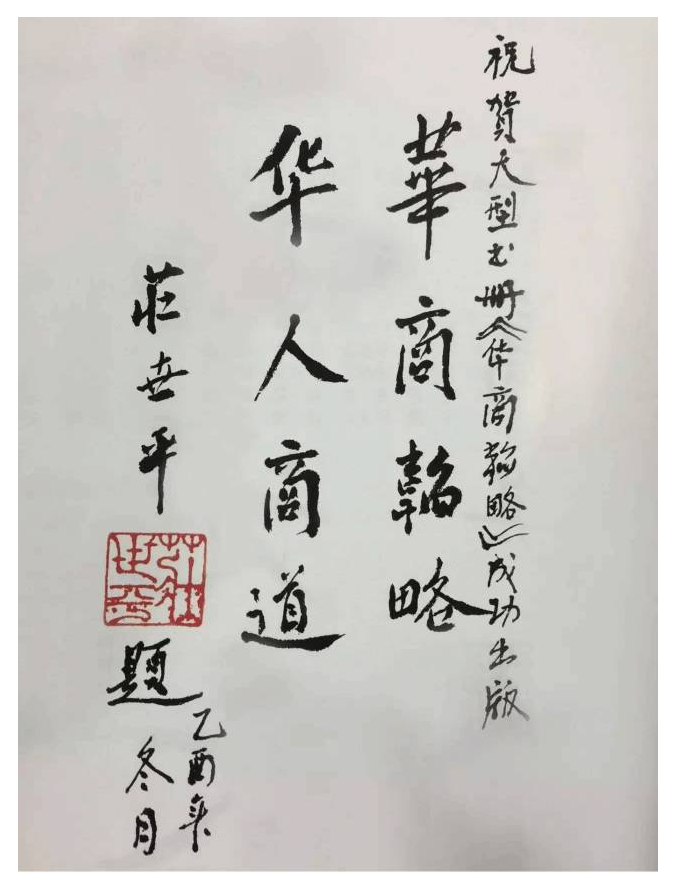 祝贺大型书册《华商韬略》成功出版
華商韜略
华人商道
莊世平
莊世平
題
乙酉年
冬月